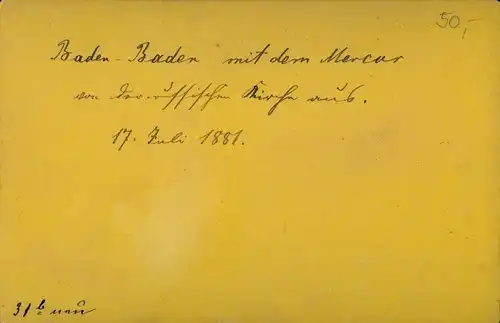 50,-
Baden-Baden mit dem Mercur
von der russischen Kirche aus.
17. Juli 1881.
31 b neu